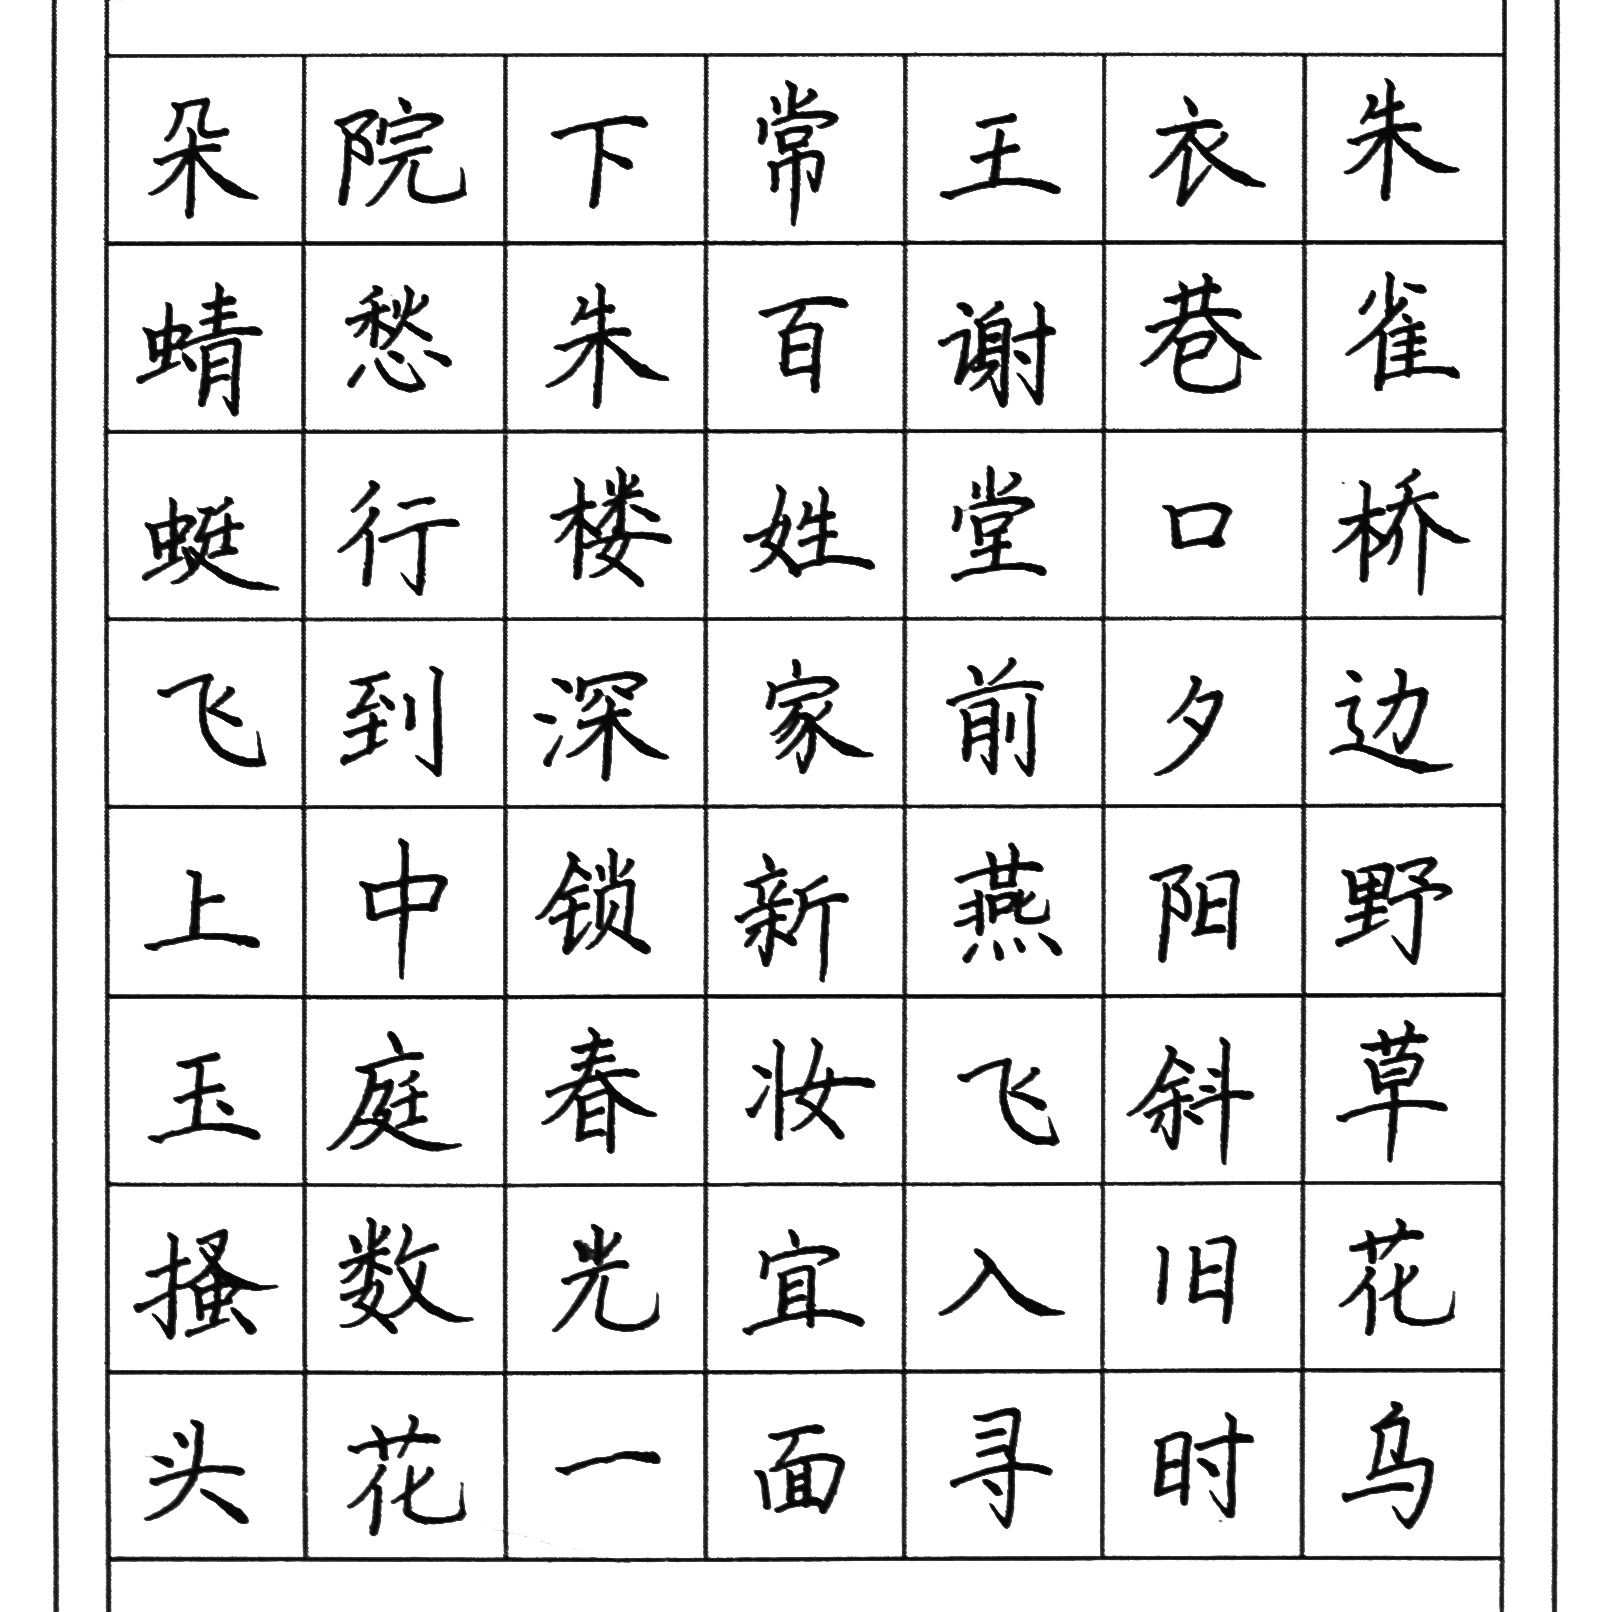 朱雀桥边野草花乌
衣巷口夕阳斜旧时
王谢堂前燕飞入寻
常百姓家新妆宜面
下朱楼深锁春光一
院愁行到中庭数花
朵蜻蜓飞上玉搔头